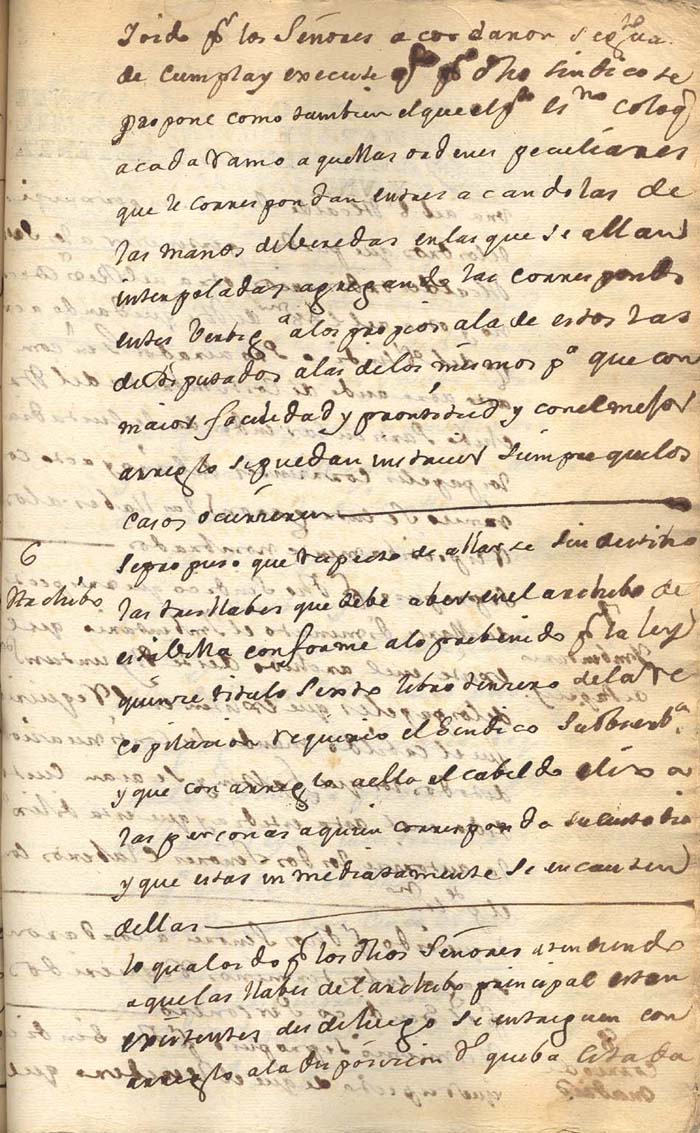 Y oido pr los Señores acordaron se gua.de
de cumpla y execute pr dho sindico se
propone como tambien el que el pte esno coloq
a cada ramo aquellas ordenes peculiares
que le correspondan entresacandolas de
las manos de beredas en las que se allan
interpoladas agregando las correspondi
entes a los propios a la de estos las
de Diputados a las de los mismos pa que con
maior facilidad y prontitud y con el mejor
arreglo se puedan instruir siempre que los
casos ocurrieren
6
Archibo
Se propuso que respecto de allarse sin destino
las tres llabes que debe aber en el archibo de
esta Villa conforme a lo prebenido pr la ley
quinze titulo sexto libro terzero de la Re
copilacion requirio el Sindico su obserba.
y que con arreglo a ella el cabildo elixa
las personas a quien corresponda su custodia
y que estas inmediatamente se encarguen
dellas
lo qual oido pr los dhos Señores atendiendo
a que las llabes del archibo principal estan
existentes desde luego se entreguen con
arreglo a la disposicion qe queba citada